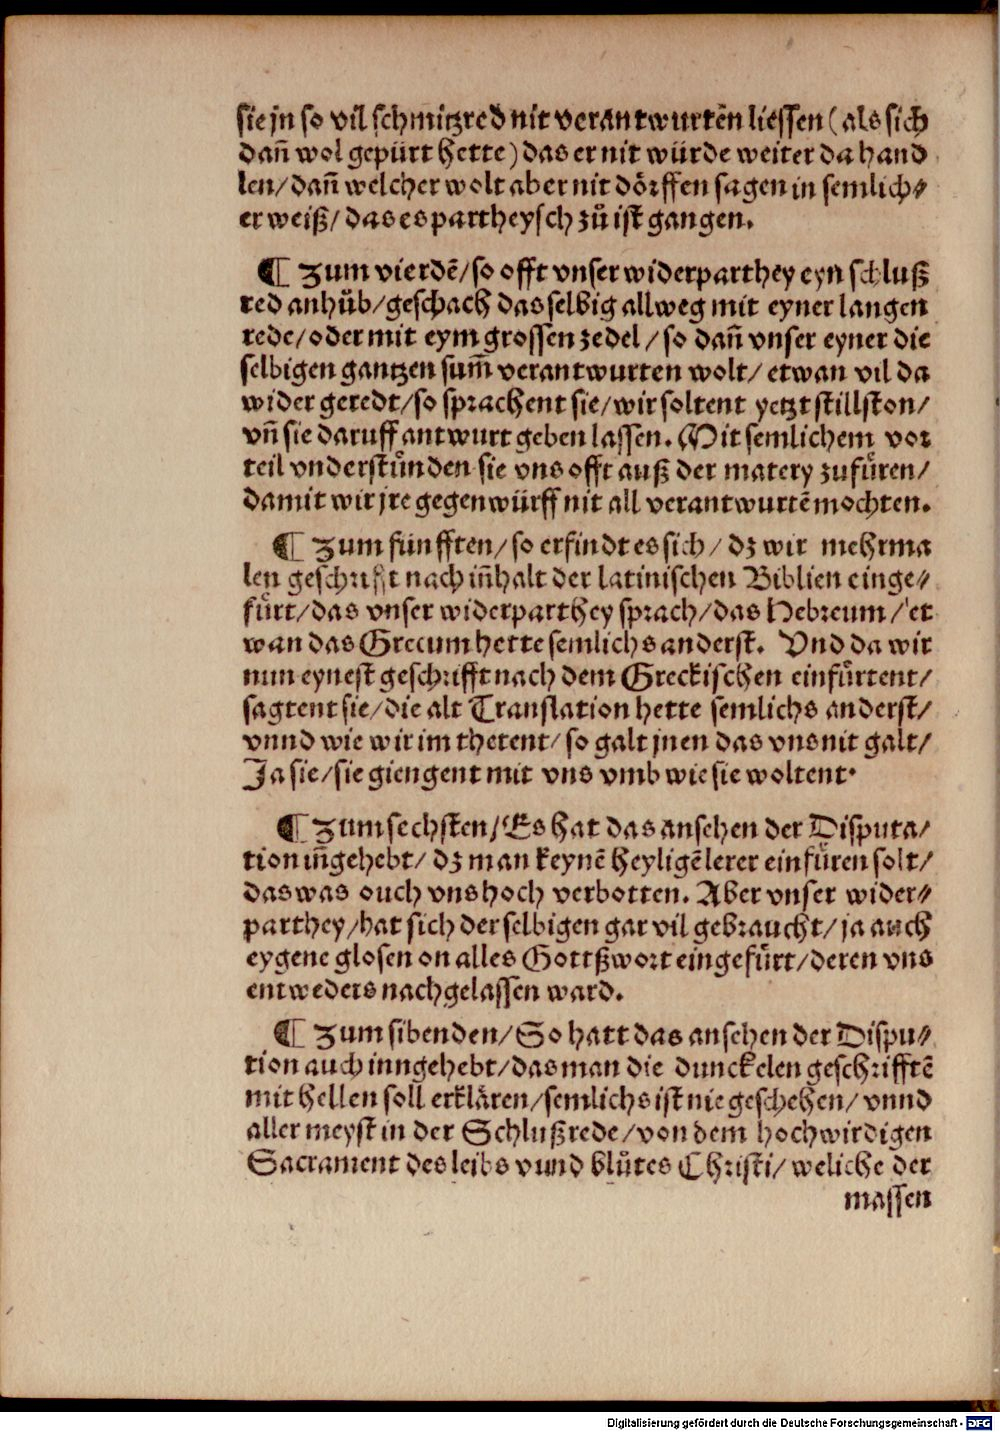 sie jn so vil schmitzred nit verantwurtẽn liessen (als sich
dañ wol gepürt hette) das er nit würde weiter da hand
len/ dañ welcher wolt aber nit dörffen sagen in semlich⸗
er weiß/ das es partheysch zů ist gangen.
¶ Zum vierdẽ/ so offt vnser widerparthey eyn schluß
red anhůb/ geschach das selbig allweg mit eyner langen
rede/ oder mit eym grossen zedel/ so dañ vnser eyner die
selbigen gantzen sum̃ verantwurten wolt/ etwan vil da
wider geredt/ so sprachent sie/ wir soltent yetzt stillston/
vñ sie daruff antwurt geben lassen. Mit semlichem vor
teil vnderstůnden sie vns offt auß der matery zufůren/
damit wir jre gegenwürff nit all verantwurtẽ mochten.
¶ Zum fünfften/ so erfindt es sich/ dz wir mehrma
len geschrifft nach iñhalt der latinischen Biblien einge⸗
fůrt/ das vnser widerparthey sprach/ das Hebreum/ et
wan das Grecum hette semlichs anderst. Vnd da wir
nun eynest geschrifft nach dem Greckischen einfůrtent/
sagtent sie/ die alt Translation hette semlichs anderst/
vnnd wie wir im thetent/ so galt jnen das vns nit galt/
Ja sie/ sie giengent mit vns vmb wie sie woltent.
¶ Zum sechsten/ Es hat das ansehen der Disputa/
tion iñgehebt/ dz man keynẽ heyligẽ lerer einfůren solt/
das was ouch vns hoch verbotten. Aber vnser wider⸗
parthey/ hat sich der selbigen gar vil gebraucht/ ja auch
eygene glosen on alles Gottßwort eingefůrt/ deren vns
entweders nachgelassen ward.
¶ Zum sibenden/ So hatt das ansehen der Dispu⸗
tion auch inngehebt/ das man die dunckelen geschrifftẽ
mit hellen soll erklären/ semlichs ist nie geschehen/ vnnd
aller meyst in der Schlußrede/ von dem hochwirdigen
Sacrament des leibs vnnd blůtes Christi/ weliche der
massen
Digitalisierung gefördert durch die Deutsche Forschungsgemeinschaft - DFG